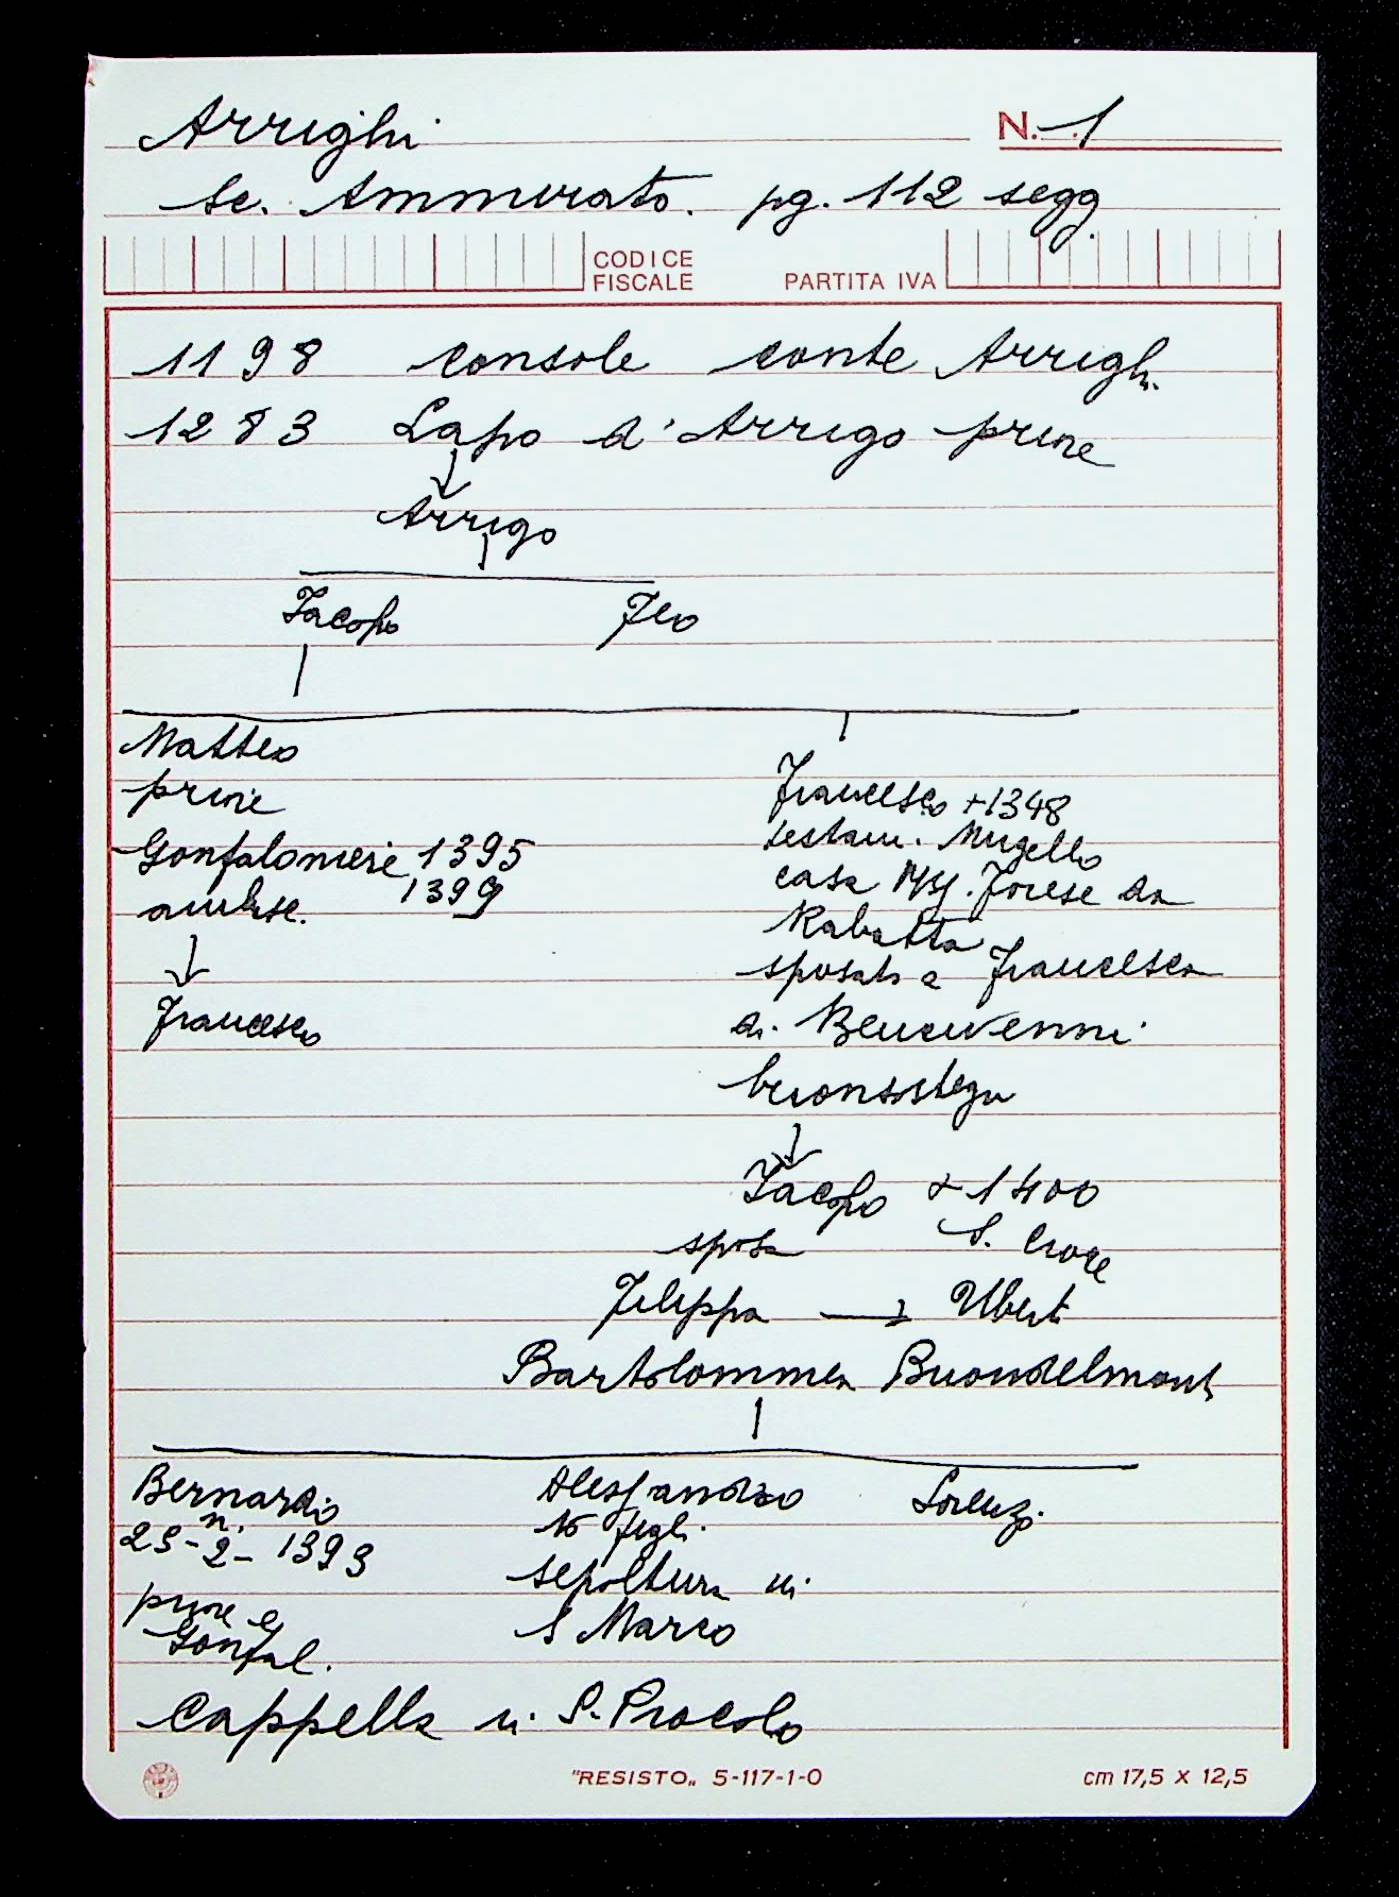 Arrighi
N. 1
Sc. Ammirato. pg. 112 segg
CODICE FISCALE
PARTITA IVA
1198 console conte Arrighi
1283 Lapo d'Arrigo priore
Arrigo
Jacopo Feo
Matteo
priore
Gonfaloniere 1395
1399
ambasc.
Francesco
Francesco +1348
testam. Mugello
casa Forese da
Rabatta
sposato a Francesca
di Bencivenni
buonsostegni
Jacopo +1400
sposa S. Croce
Filippa → Uberti
Bartolommea Buondelmonti
Bernardo
n.
23-2-1393
priore e
Gonfal.
Alessandro
16 figli
sepoltura in
S Marco
Lorenzo
Cappella in S. Procolo
"RESISTO„ 5-117-1-0
cm 17,5 x 12,5